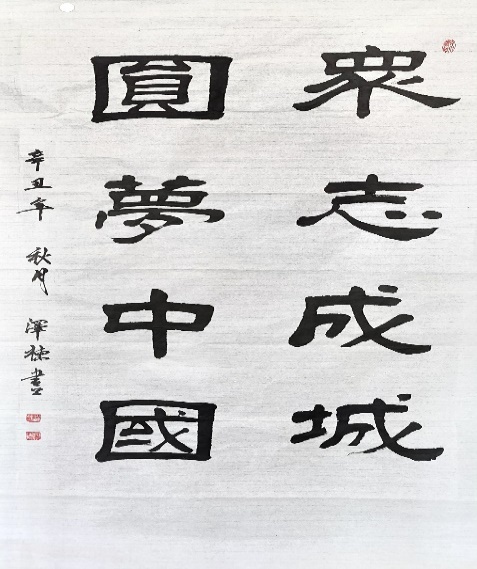 眾志成城
圓夢中國
辛丑年 秋月 澤祿書